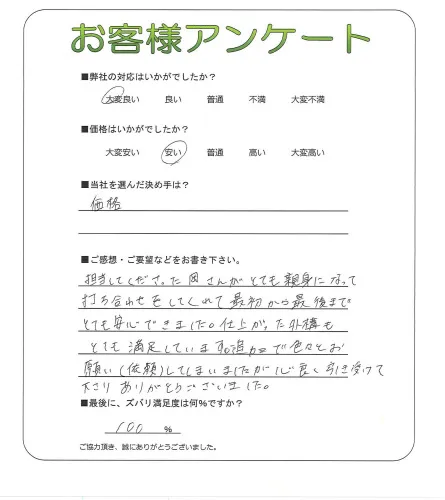 お客様アンケート
■弊社の対応はいかがでしたか？
大変良い 良い 普通 不満 大変不満
■価格はいかがでしたか？
大変安い 安い 普通 高い 大変高い
■当社を選んだ決め手は？
価格
■ご感想・ご要望などをお書き下さい。
担当してくださった 岡さんがとても親身になって
打ち合わせをしてくれて最初から最後まで
とても安心できました。仕上がった外構も
とても満足しています。追加で色々とお
願い(依頼)してしまいましたが心良く引き受けて
下さり ありがとうございました。
■最後に、ズバリ満足度は何%ですか？
100 %
ご協力頂き、誠にありがとうございました。